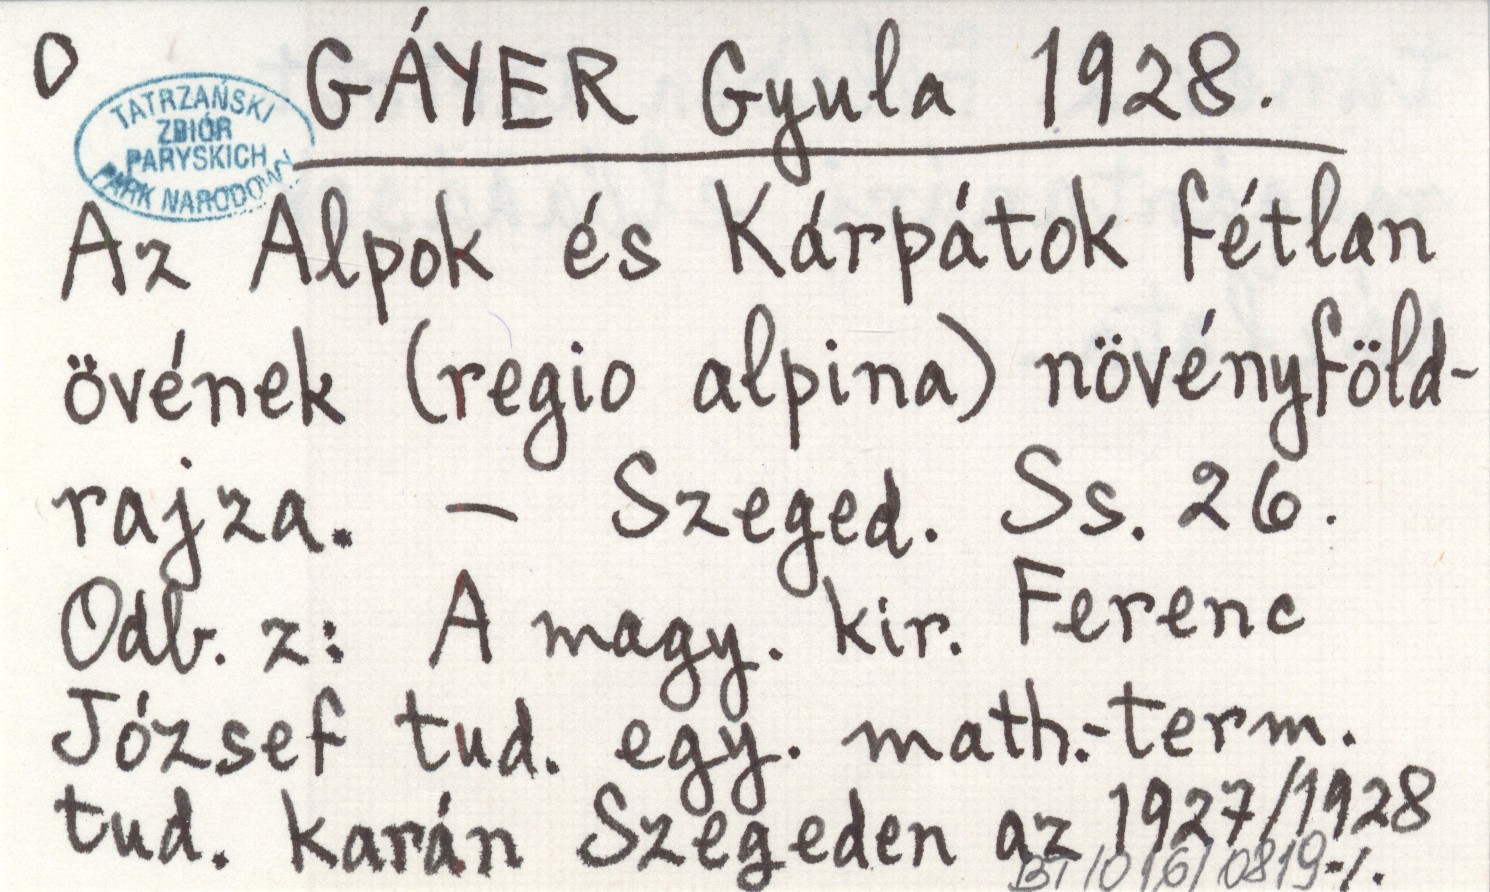 O GÁYER Gyula 1928.
TATRZAŃSKI
ZBIÓR
PARYSKICH
PARK NARODOWY
Az Alpok és Kárpátok fétlan
övének (regio alpina) növényföld-
rajza. – Szeged. Ss. 26.
Odb. z: A magy. kir. Ferenc
József tud. egy. math.-term.
tud. karán Szegeden az 1927/1928
BT/016/0819 -/.